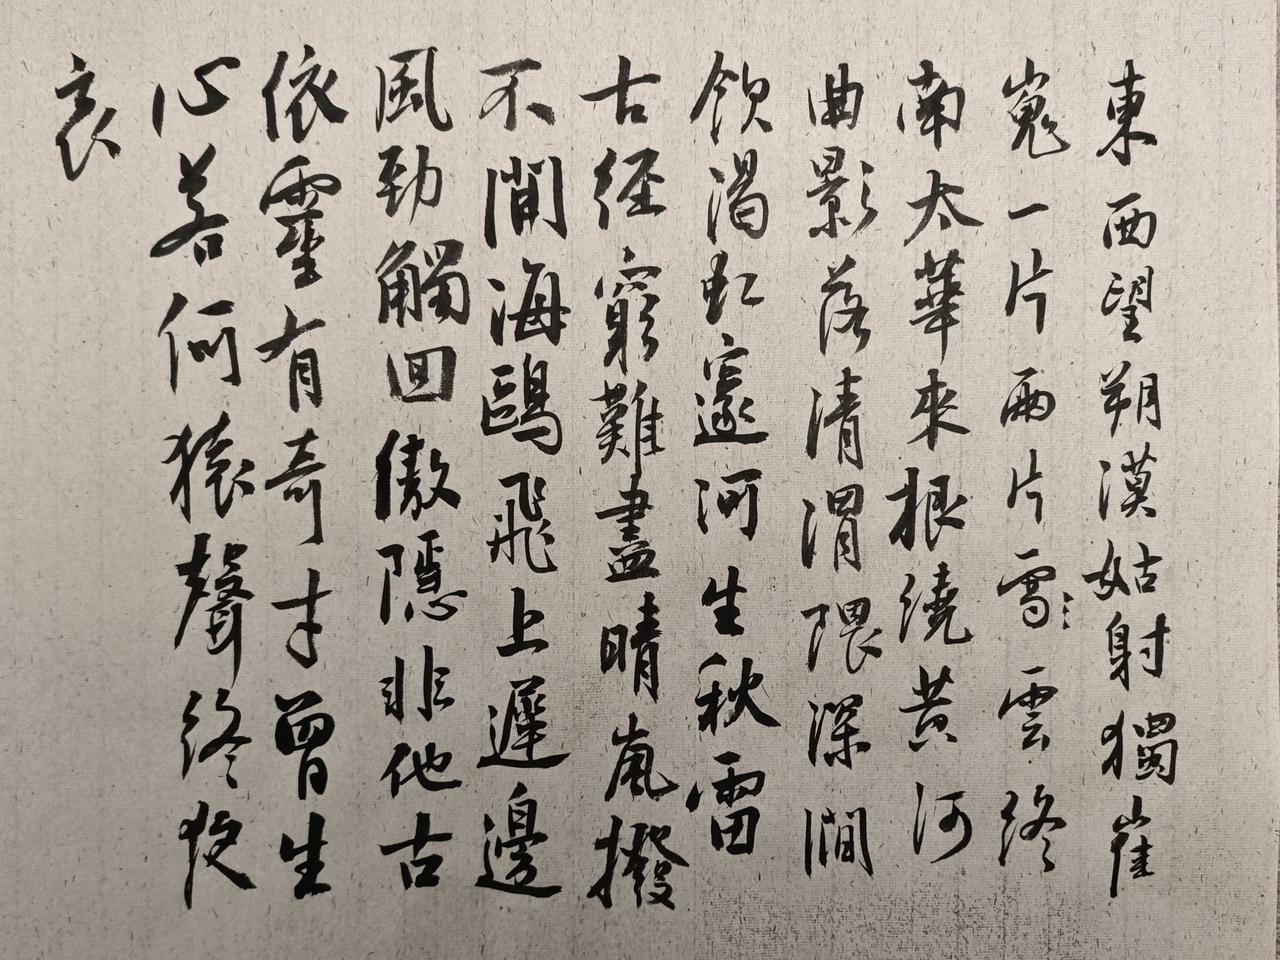 東西望朔漠姑射獨崔
嵬一片兩片雪雲終
南太華來根繞黃河
曲影落清渭隈深澗
飲渴虹邃河生秋雷
古徑窮難盡晴嵐撥
不開海鷗飛上遲邊
風勁觸回傲隱非他古
依靈有奇才曾生
心若何猿聲終夜
哀